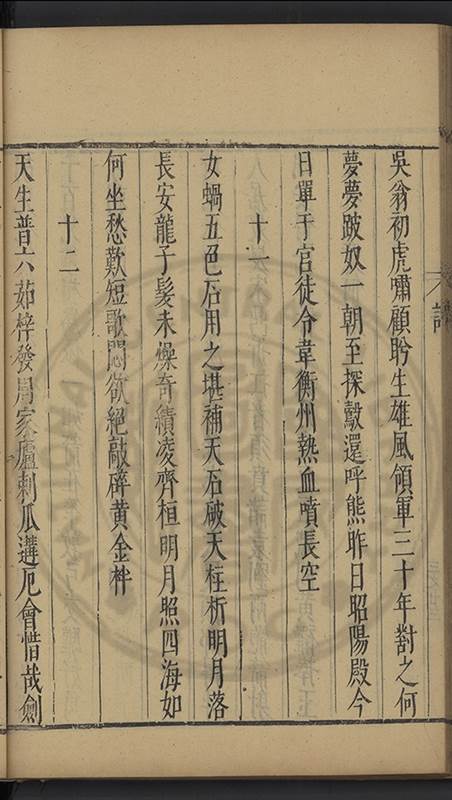 吳翁初虎嘯顧盻生雄風領軍三十年對之何
夢夢跛奴一朝至探鷇還呼熊昨日昭陽殿今
日單于宮徒令韋衡州熱血噴長空
十一
女媧五色石用之堪補天石破天柱析明月落
長安龍子髮未燥奇績凌齊桓明月照四海如
何坐愁歎短歌悶欲絕敲碎黃金柈
十二
天生普六茹梓發周家廬刺瓜遘厄會惜哉劍